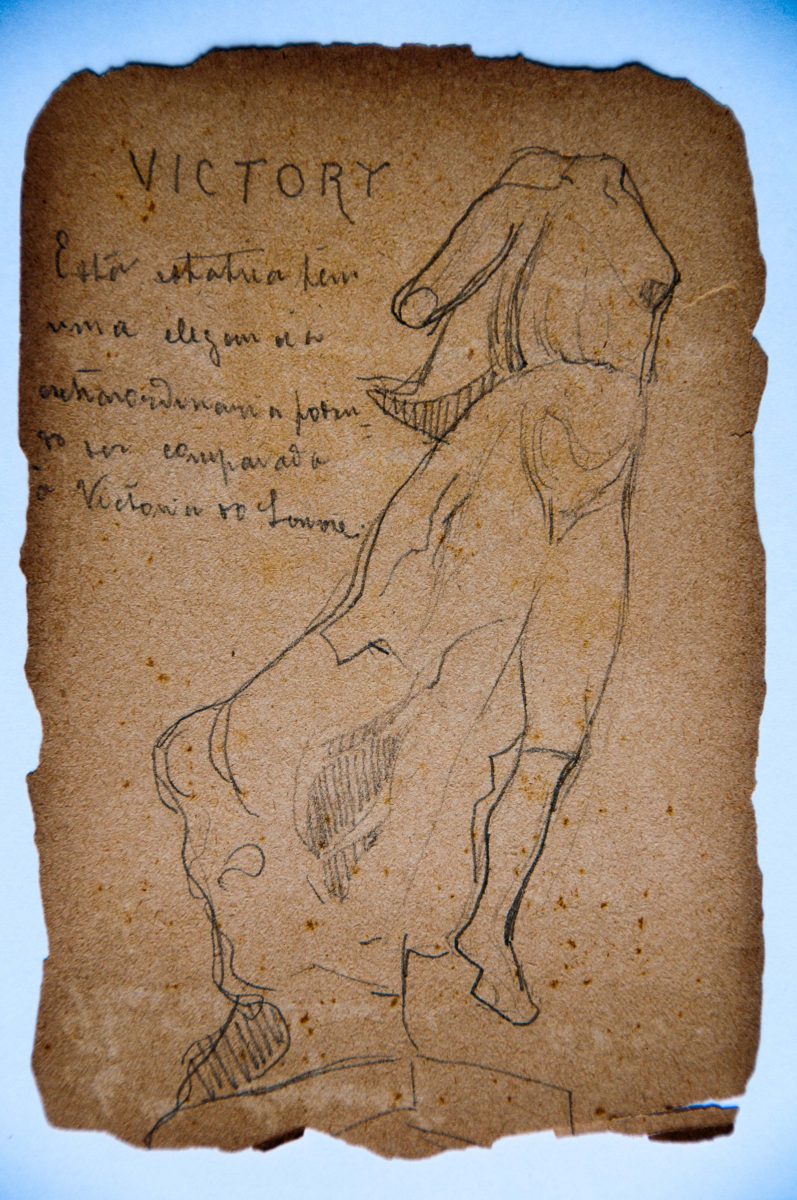 VICTORY
Esta estatua tem
uma elegancia
extraordinaria poden-
do ser comparada
á Victoria do Louvre.